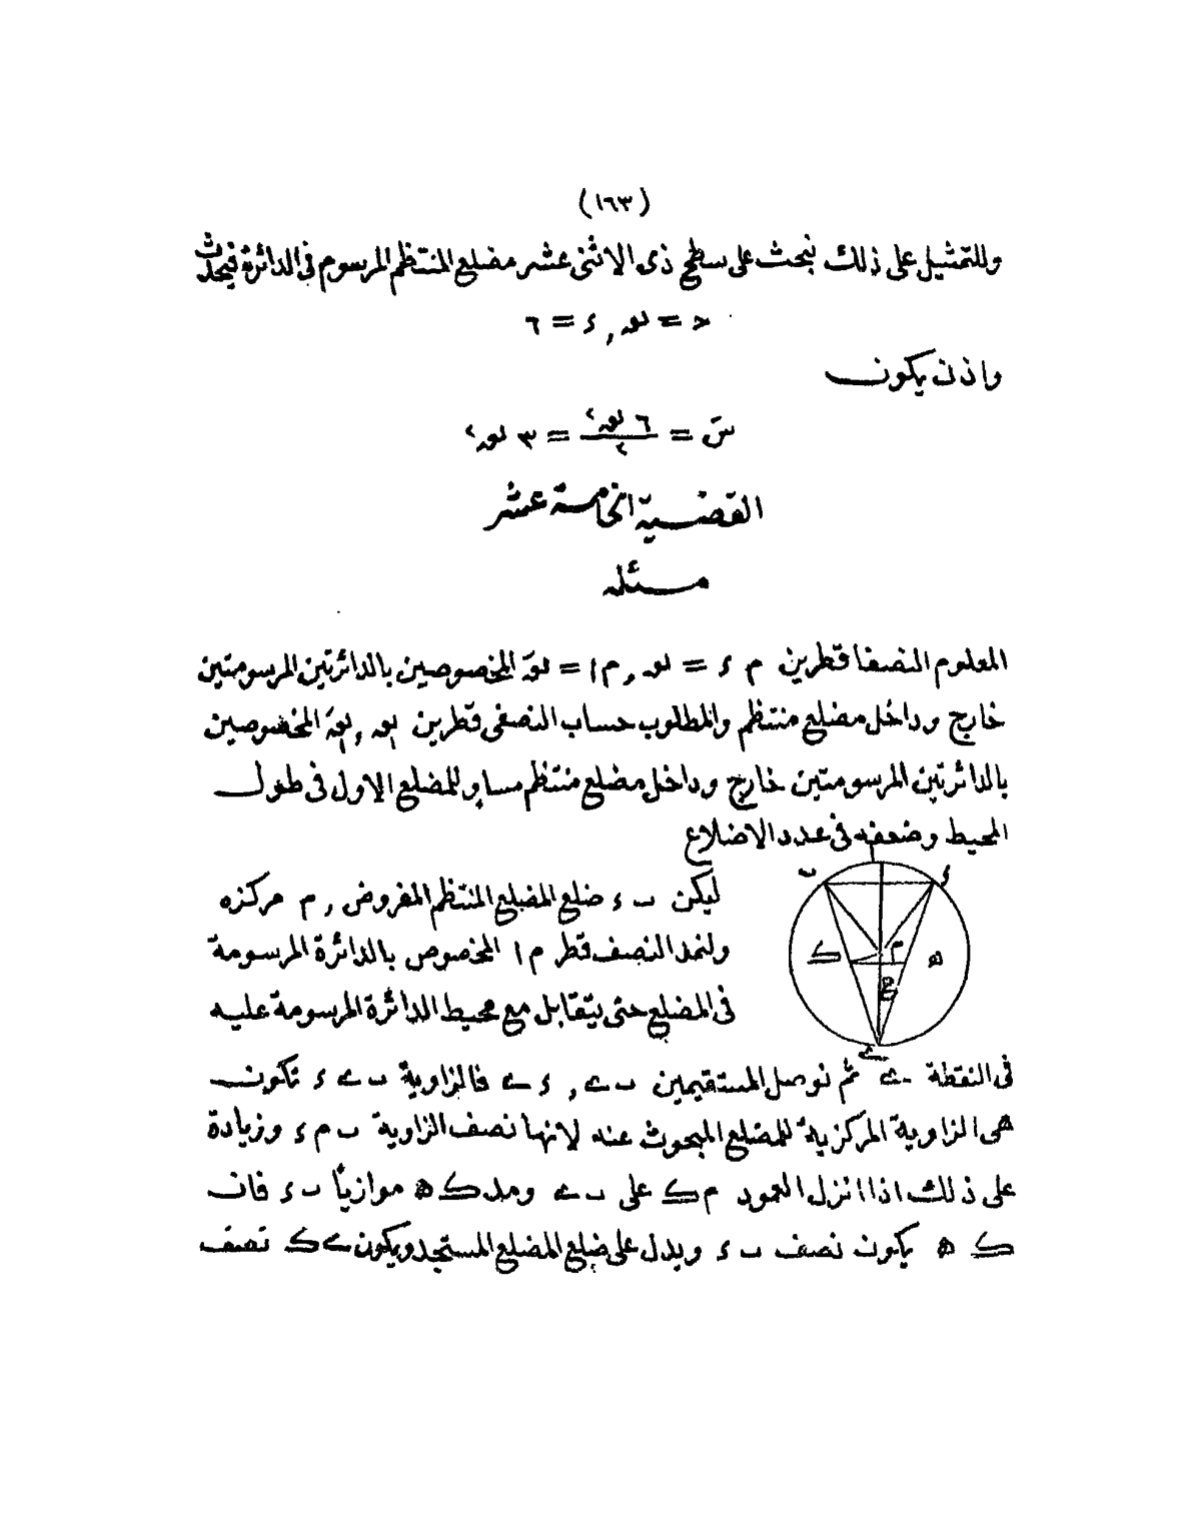 (١٦٣)
وللتمثيل على ذلك نبحث على سطح ذى الاثنى عشر مضلع المنتظم المرسوم فى الدائرة فيحدث
ح = نوه , ء = ٦
واذن يكون
سَ = ٦ نوه٢ / ٢ = ٣ نوه٢
القضية الخامسة عشر
مسئله
المعلوم النصفا قطرين م ء = نوه , م ا = نوهَ المخصوصين بالدائرتين المرسومتين
خارج وداخل مضلع منتظم والمطلوب حساب النصفى قطرين نوه , نوهَ المخصوصين
بالدائرتين المرسومتين خارج وداخل مضلع منتظم مساو للمضلع الاول فى طول
المحيط وضعفه فى عدد الاضلاع
ا
ب ء
ك م ه
ح
ى
ليكن ب ء ضلع المضلع المنتظم المفروض , م مركزه
ولنمد النصف قطر م ا المخصوص بالدائرة المرسومة
فى المضلع حتى يتقابل مع محيط الدائرة المرسومة عليه
فى النقطة ى ثم نوصل المستقيمين ب ى , ء ى فالزاوية ب ى ء تكون
هى الزاوية المركزية للمضلع المبحوث عنه لانها نصف الزاوية ب م ء وزيادة
على ذلك اذا انزل العمود م ك على ب ى ومد ك ه موازياً ب ء فان
ك ه يكون نصف ب ء ويدل على ضلع المضلع المستجد ويكون ى ك نصف